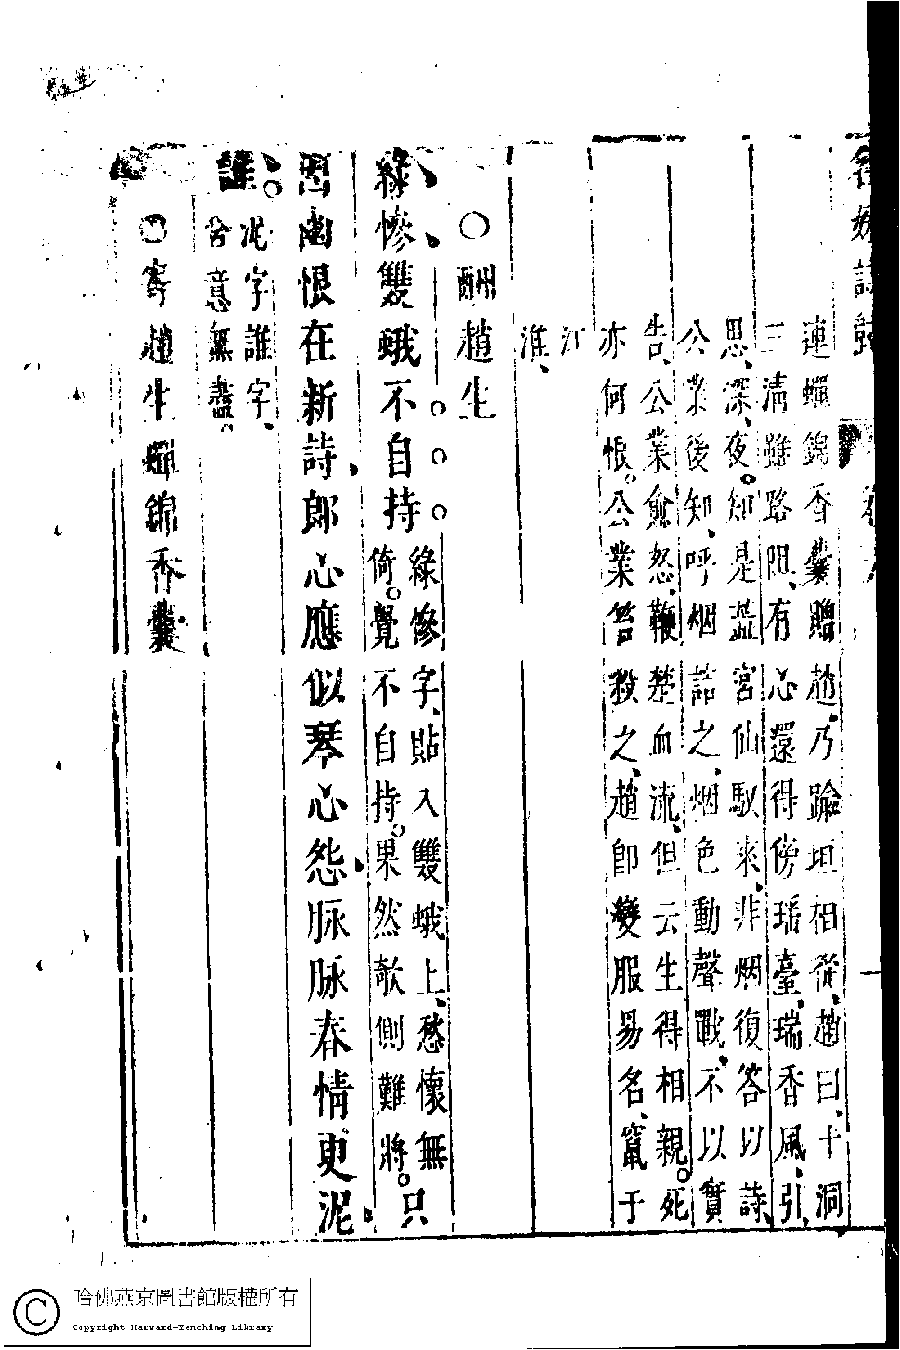 名媛詩歸
連蟬錦香囊贈趙乃踰垣相從趙曰十洞
三清雖路阻有心還得傍瑤臺瑞香風引
思深夜知是蕊宮仙馭來非烟復答以詩
公業後知呼烟詰之烟色動聲戰不以實
告公業愈怒鞭楚血流但云生得相親死
亦何恨公業笞殺之趙即變服易名竄于
江
淮
○酬趙生
綠慘雙蛾不自持
綠慘字貼入雙蛾上愁懷無
倚覺不自持果然欹側難將
只
㤙幽恨在新詩郎心應似琴心怨脉脉春情更泥
誰
泥字誰字
含意無盡
○寄趙生蟬錦香囊
哈佛燕京圖書館版權所有
Copyright Harvard-Yenching Library